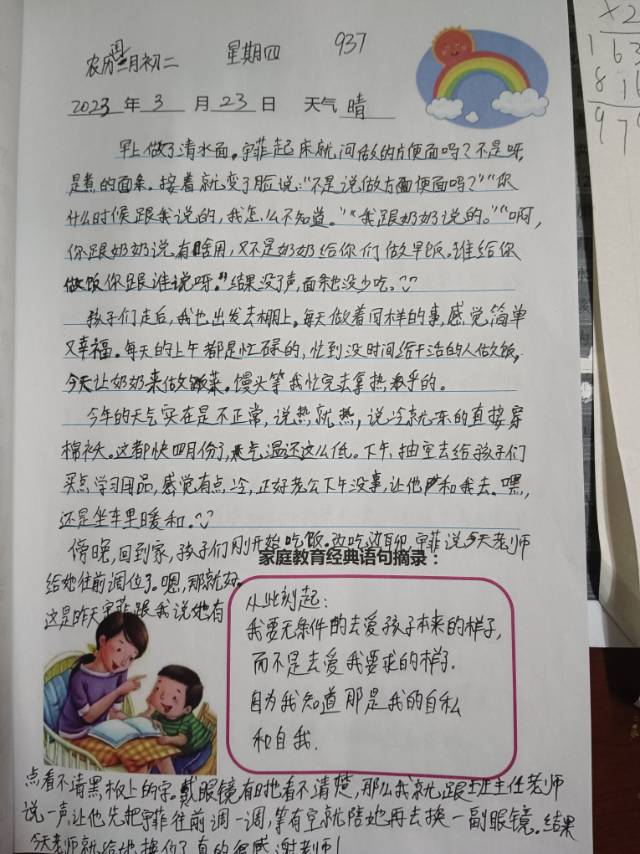 农历闰二月初二 星期四 937
2023年3月23日 天气晴
早上做了清水面。宇菲起床就问做的方便面吗？不是呀，
是煮的面条。接着就变了脸说："不是说做方便面吗？""你
什么时候跟我说的，我怎么不知道。""我跟奶奶说的。""啊，
你跟奶奶说有啥用，又不是奶奶给你们做早饭。谁给你
做饭你跟谁说呀。"结果没了声，面条也没少吃。
孩子们走后，我也出发去棚上。每天做着同样的事，感觉简单
又幸福。每天的上午都是忙碌的，忙到没时间给干活的人做饭，
今天让奶奶来做饭菜。馒头等我忙完去拿热乎乎的。
今年的天气实在是不正常，说热就热，说冷就冻的直接穿
棉袄。这都快四月份了，气温还这么低。下午，抽空去给孩子们
买点学习用品，感觉有点冷，正好老公下午没事，让他和我去。嘿，
还是坐车里暖和。
傍晚，回到家，孩子们刚开始吃饭。边吃边聊，宇菲说今天老师
家庭教育经典语句摘录：
给她往前调位了。嗯，那就好。
这是昨天宇菲跟我说她有
从此刻起：
我要无条件的去爱孩子本来的样子，
而不是去爱我要求的样子。
因为我知道那是我的自私
和自我。
点看不清黑板上的字。戴眼镜有时也看不清楚，那么我就跟班主任老师
说一声，让他先把宇菲往前调一调，等有空就陪她再去换一副眼镜。结果
今天老师就给她换位了。真的很感谢老师！
1 x2
63
8
979